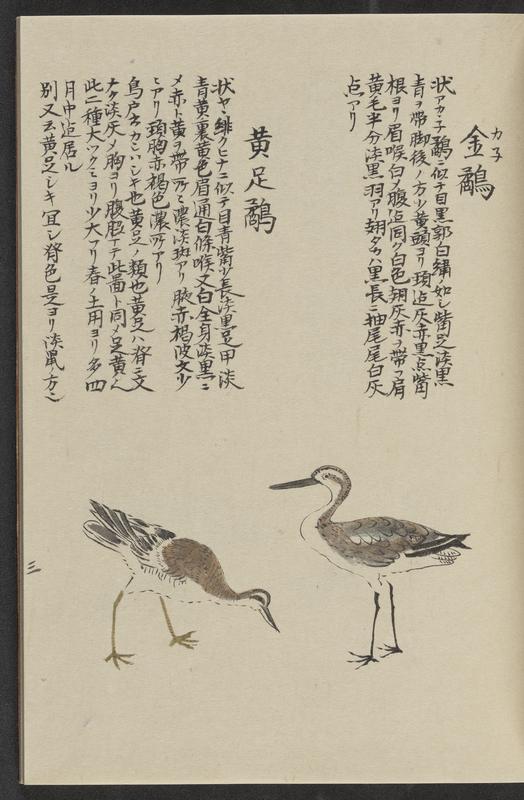 カ子
金鷸
状アカ子鷸ニ似テ目黒郭白繍ノ如シ觜足淡黒
青ヲ帯脚後ノ方少黄頭ヨリ頚迠灰赤黒点觜
根ヨリ眉喉白ク腹迠同ク白色翅灰赤ヲ帯フ肩
黄毛半分淡黒羽アリ翅タカハ黒長ニ抽尾尾白灰
点アリ
黄足鷸
状ヤヽ緋クヒナニ似テ目青觜少長淡黒足甲淡
青黄裏黄色眉通白條喉又白全身淡黒ニ
メ赤ト黄ヲ帯所々濃淡斑アリ腋赤褐波文少
シアリ頚胸亦褐色濃所アリ
鳥戸
也黄足ノ類也黄足ハ脊ニ文
ナク淡灰メ胸ヨリ腹脛ニテ此圖ト同メ足黄ク
此二種大ツクミヨリ少大ナリ春ノ土用ヨリ多四
月中迠居ル
別又云黄足シキ冝シ脊色是ヨリ淡鼠ノ方
三